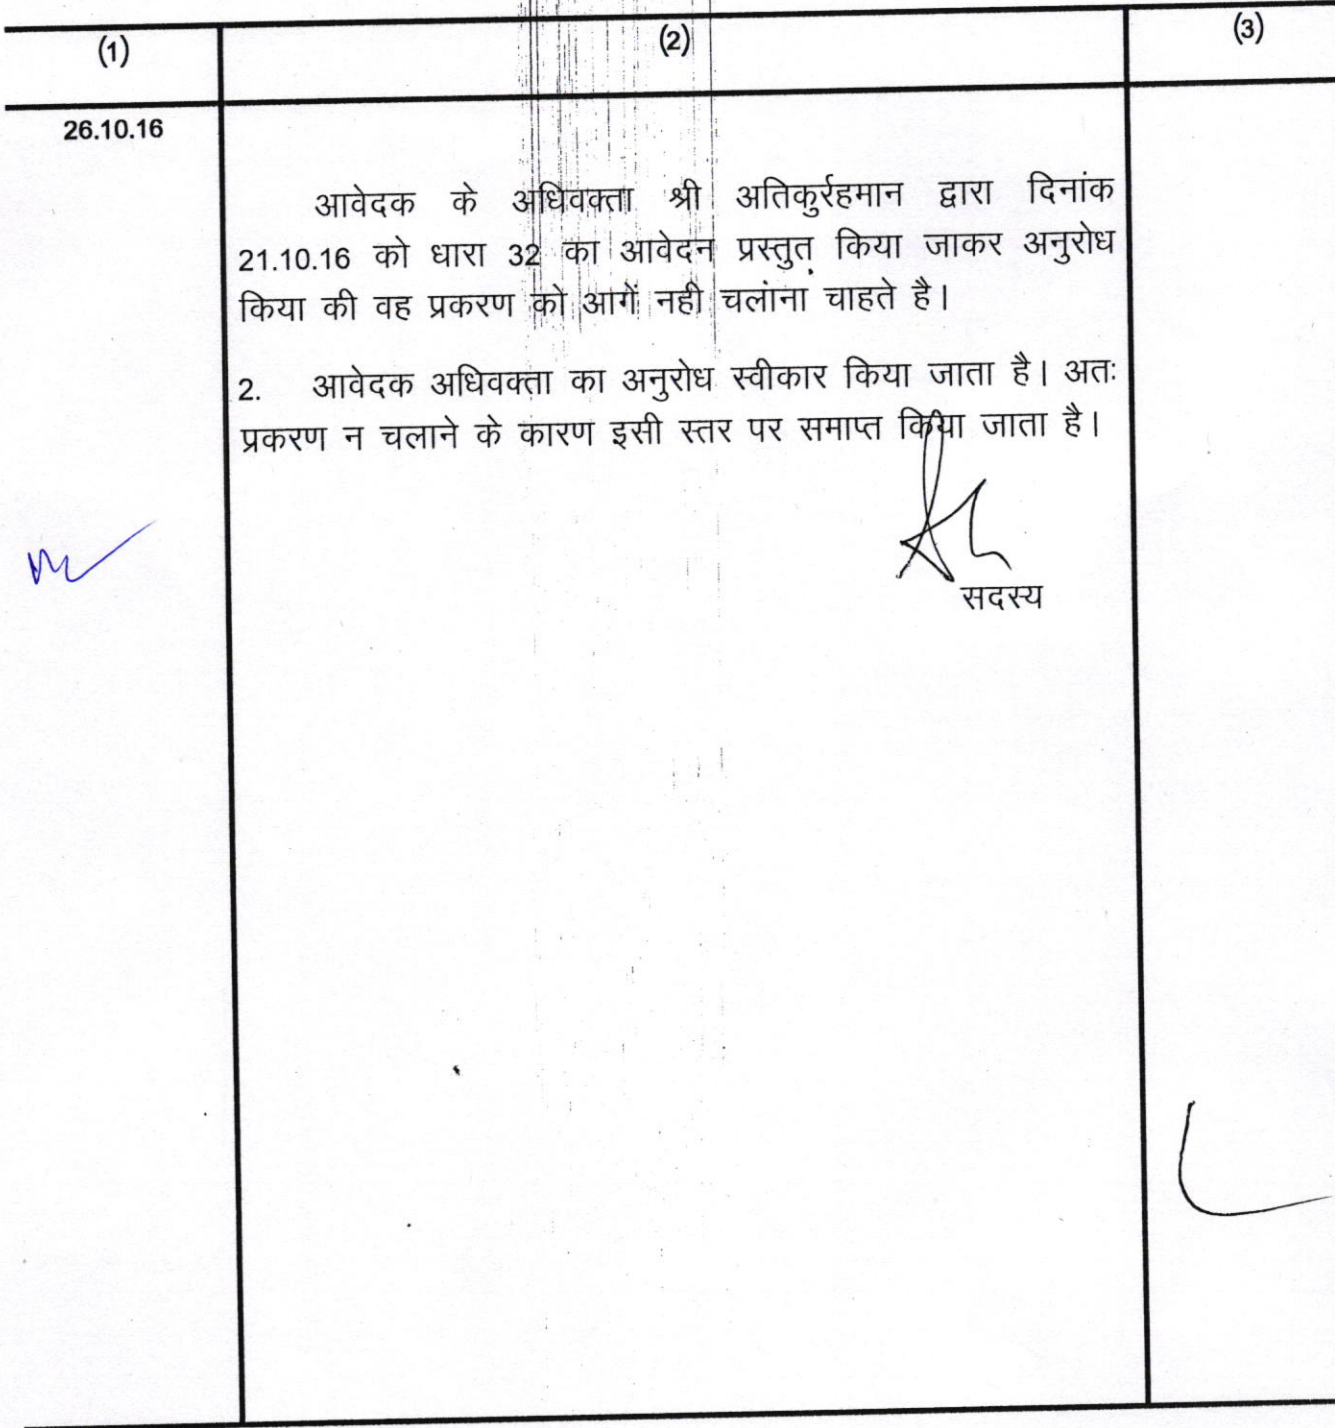 (1) (2) (3)
26.10.16
आवेदक के अधिवक्ता श्री अतिकुर्रहमान द्वारा दिनांक
21.10.16 को धारा 32 का आवेदन प्रस्तुत किया जाकर अनुरोध
किया की वह प्रकरण को आगें नही चलांनां चाहते है।
2. आवेदक अधिवक्ता का अनुरोध स्वीकार किया जाता है। अतः
प्रकरण न चलाने के कारण इसी स्तर पर समाप्त किया जाता है।
सदस्य